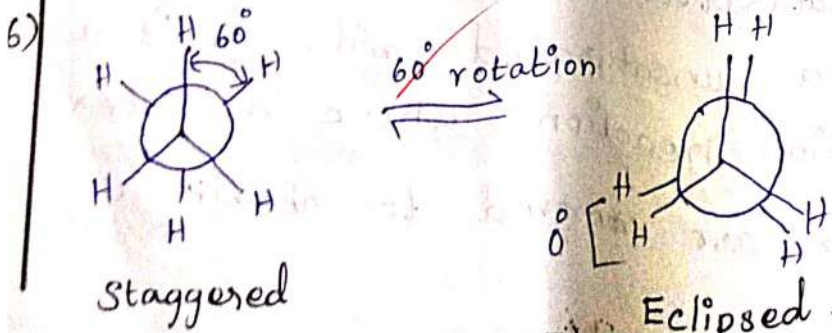 6)
H 60°
H H
H H
H
Staggered
60° rotation
H H
0° H
H H
H
Eclipsed